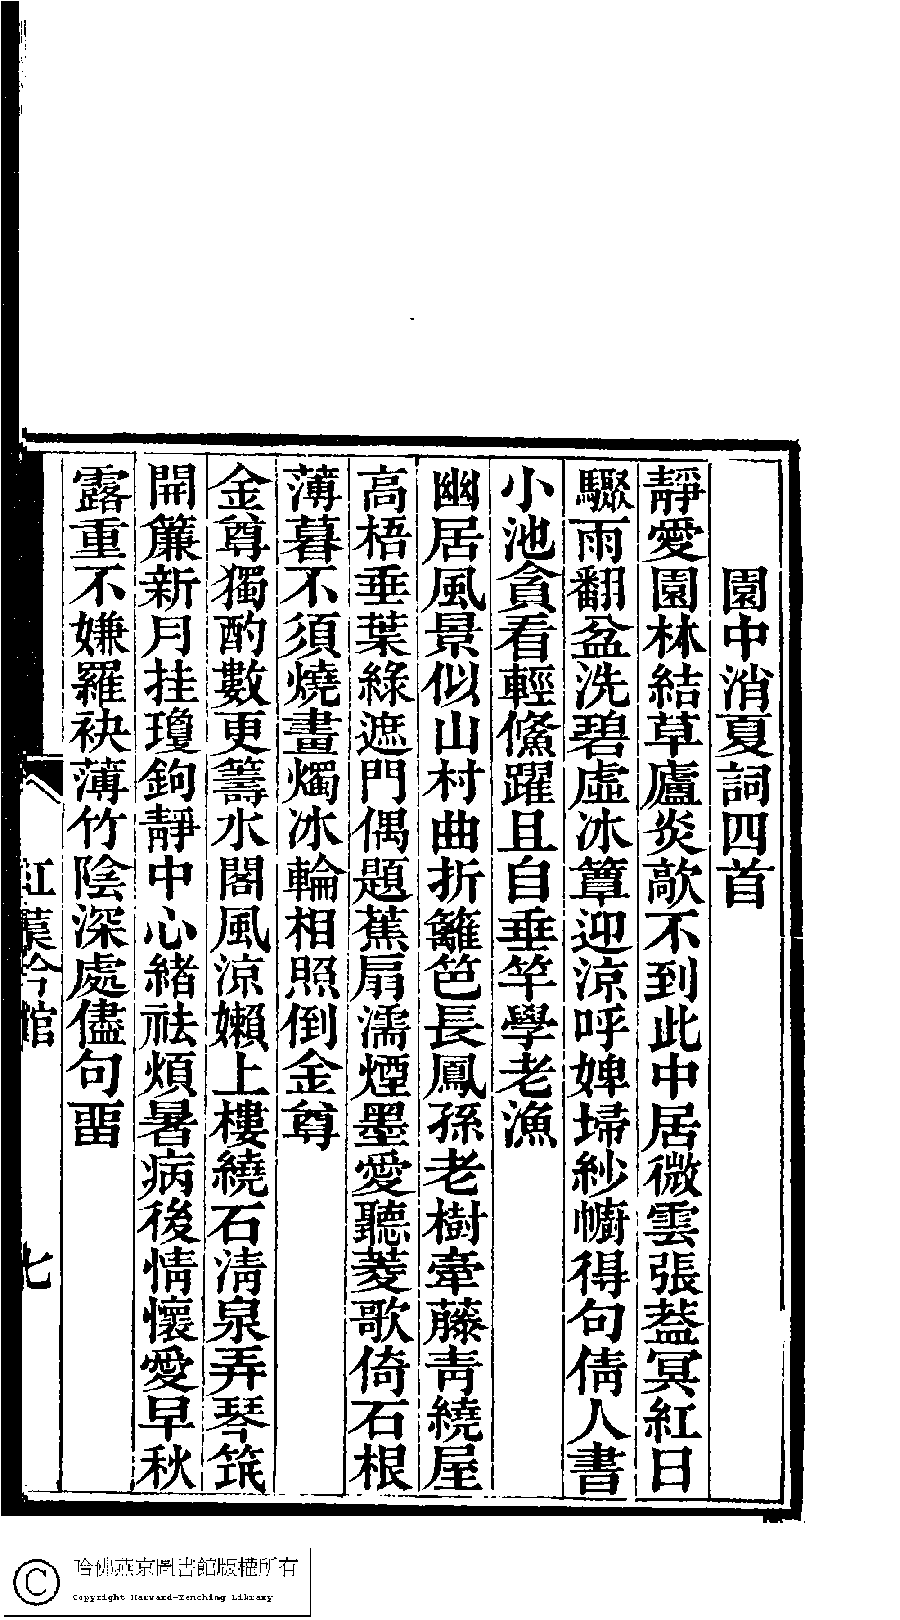 園中消夏詞四首
靜愛園林結草廬炎歊不到此中居微雲張葢冥紅日
驟雨翻盆洗碧虛冰簟迎涼呼婢埽紗幮得句倩人書
小池貪看輕鯈躍且自垂竿學老漁
幽居風景似山村曲折籬笆長鳳孫老樹牽藤青繞屋
高梧垂葉綠遮門偶題蕉扇濡煙墨愛聽菱歌倚石根
薄暮不須燒畫燭冰輪相照倒金尊
金尊獨酌數更籌水閣風涼嬾上樓繞石清泉弄琴筑
開簾新月挂瓊鉤靜中心緒祛煩暑病後情懷愛早秋
露重不嫌羅袂薄竹陰深處儘句畱
紅蕉吟館
七
哈佛燕京圖書館版權所有
Copyright Harvard-Yenching Library